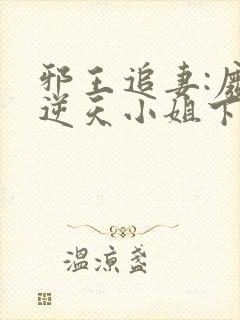 邪王追妻:
逆天小姐下
温凉盏